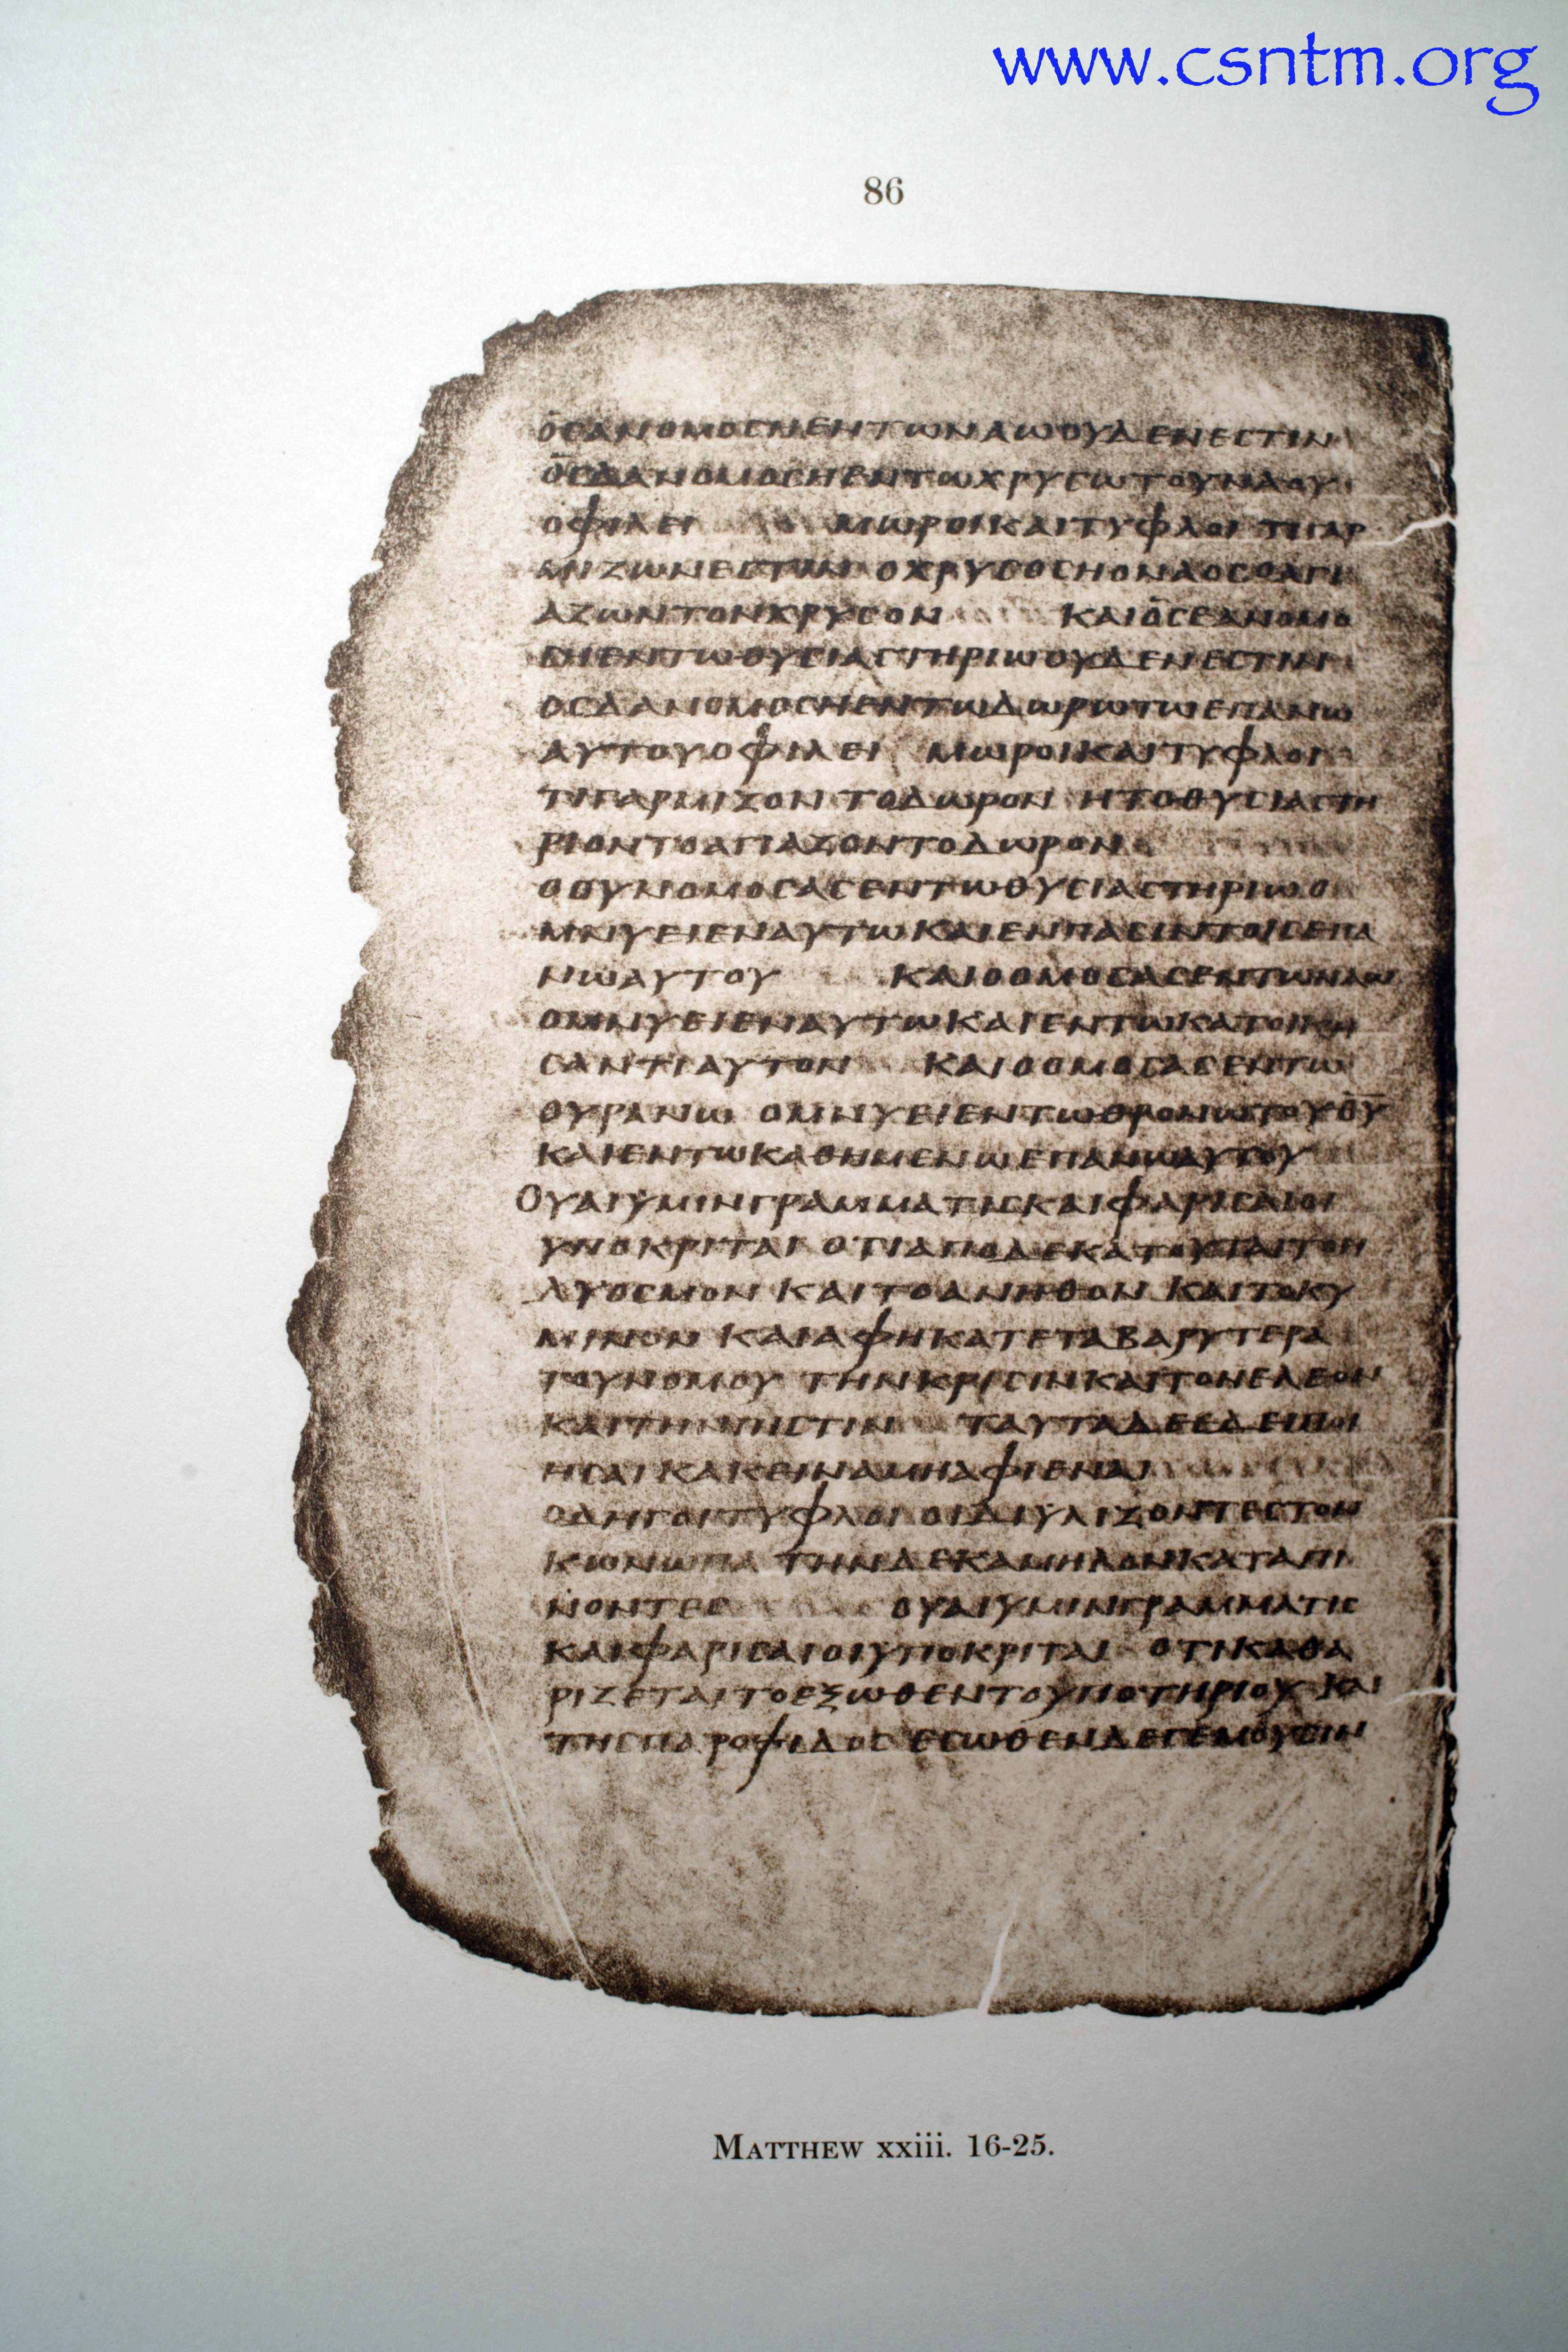 www.csntm.org
86
ΟϹΑΝΟΜΟϹΗΕΝΤΩΝΑΩΟΥΔΕΝΕϹΤΙΝ
ΟϹΔΑΝΟΜΟϹΗΕΝΤΩΧΡΥϹΩΤΟΥΝΑΟΥ
ΟΦΙΛΕΙ ΜΩΡΟΙΚΑΙΤΥΦΛΟΙ ΤΙΓΑΡ
ΜΙΖΩΝΕϹΤΙΝ ΟΧΡΥϹΟϹΗΟΝΑΟϹΟΑΓΙ
ΑΖΩΝΤΟΝΧΡΥϹΟΝ ΚΑΙΟϹΕΑΝΟΜΟ
ϹΗΕΝΤΩΘΥϹΙΑϹΤΗΡΙΩΟΥΔΕΝΕϹΤΙΝ
ΟϹΔΑΝΟΜΟϹΗΕΝΤΩΔΩΡΩΤΩΕΠΑΝΩ
ΑΥΤΟΥΟΦΙΛΕΙ ΜΩΡΟΙΚΑΙΤΥΦΛΟΙ
ΤΙΓΑΡΜΙΖΟΝ ΤΟΔΩΡΟΝ ΗΤΟΘΥϹΙΑϹΤΗ
ΡΙΟΝΤΟΑΓΙΑΖΟΝΤΟΔΩΡΟΝ
ΟΟΥΝΟΜΟϹΑϹΕΝΤΩΘΥϹΙΑϹΤΗΡΙΩΟ
ΜΝΥΕΙΕΝΑΥΤΩΚΑΙΕΝΠΑϹΙΝΤΟΙϹΕΠΑ
ΝΩΑΥΤΟΥ ΚΑΙΟΟΜΟϹΑϹΕΝΤΩΝΑΩ
ΟΜΝΥΕΙΕΝΑΥΤΩΚΑΙΕΝΤΩΚΑΤΟΙΚΗ
ϹΑΝΤΙΑΥΤΟΝ ΚΑΙΟΟΜΟϹΑϹΕΝΤΩ
ΟΥΡΑΝΩ ΟΜΝΥΕΙΕΝΤΩΘΡΟΝΩΤΟΥΘΥ
ΚΑΙΕΝΤΩΚΑΘΗΜΕΝΩΕΠΑΝΩΑΥΤΟΥ
ΟΥΑΙΥΜΙΝΓΡΑΜΜΑΤΙϹΚΑΙΦΑΡΙϹΑΙΟΙ
ΥΠΟΚΡΙΤΑΙ ΟΤΙΑΠΟΔΕΚΑΤΟΥΤΑΙΤΟΗ
ΔΥΟϹΜΟΝ ΚΑΙΤΟΑΝΗΘΟΝ ΚΑΙΤΟΚΥ
ΜΙΝΟΝ ΚΑΙΑΦΗΚΑΤΕΤΑΒΑΡΥΤΕΡΑ
ΤΟΥΝΟΜΟΥ ΤΗΝΚΡΙϹΙΝΚΑΙΤΟΝΕΛΕΟΝ
ΚΑΙΤΗΝΠΙϹΤΙΝ ΤΑΥΤΑΔΕΕΔΕΙΠΟΙ
ΗϹΑΙΚΑΚΕΙΝΑΜΗΑΦΙΕΝΑΙ
ΟΔΗΓΟΙΤΥΦΛΟΙ ΟΙΔΙΥΛΙΖΟΝΤΕϹΤΟΝ
ΚΩΝΩΠΑ ΤΗΝΔΕΚΑΜΗΛΟΝΚΑΤΑΠΙ
ΝΟΝΤΕϹ ΟΥΑΙΥΜΙΝΓΡΑΜΜΑΤΙϹ
ΚΑΙΦΑΡΙϹΑΙΟΙΥΠΟΚΡΙΤΑΙ ΟΤΙΚΑΘΑ
ΡΙΖΕΤΑΙΤΟΕΞΩΘΕΝΤΟΥΠΟΤΗΡΙΟΥ ΚΑΙ
ΤΗϹΠΑΡΟΨΙΔΟϹ ΕϹΩΘΕΝΔΕΓΕΜΟΥϹΙΝ
MATTHEW xxiii. 16-25.